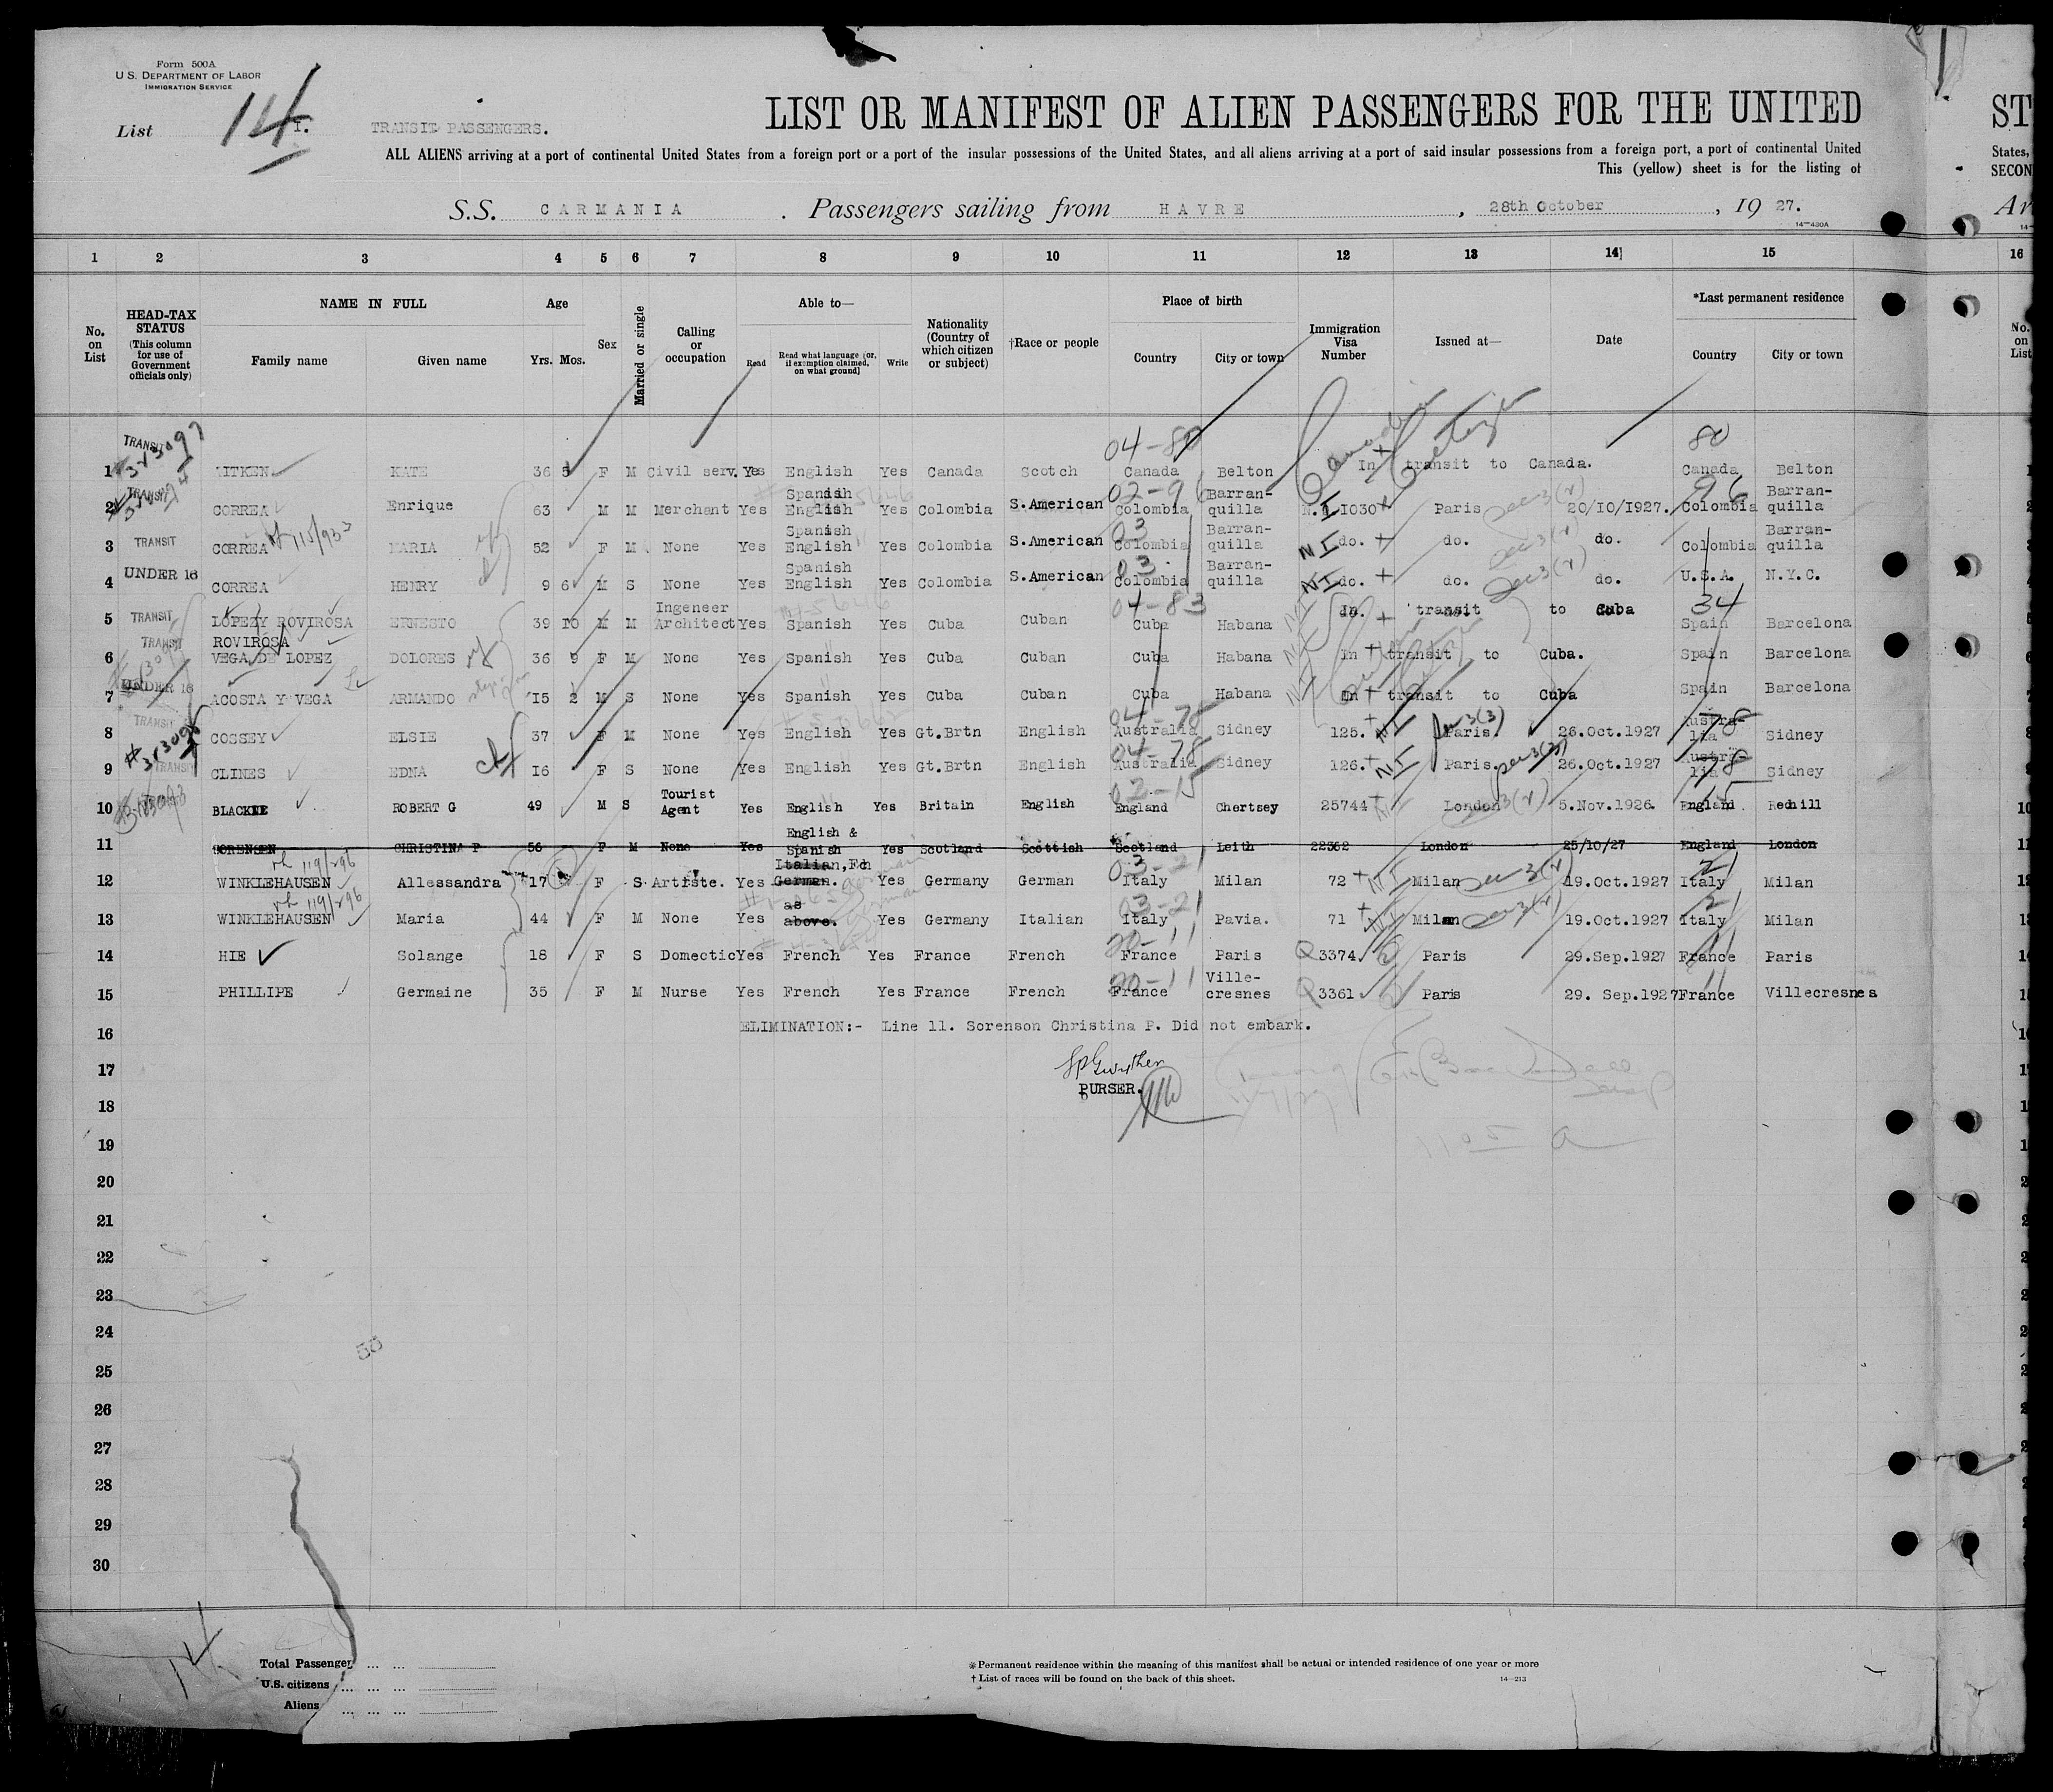 Form 500A
U S. DEPARTMENT OF LABOR
IMMIGRATION SERVICE
List 14 I. TRANSIT PASSENGERS.
LIST OR MANIFEST OF ALIEN PASSENGERS FOR THE UNITED ST
ALL ALIENS arriving at a port of continental United States from a foreign port or a port of the insular possessions of the United States, and all aliens arriving at a port of said insular possessions from a foreign port, a port of continental United States,
This (yellow) sheet is for the listing of SECON
S.S. CARMANIA . Passengers sailing from HAVRE , 28th October , 19 27. Ar
14—430A
1 2 3 4 5 6 7 8 9 10 11 12 13 14 15 16
No. on List
HEAD-TAX STATUS (This column for use of Government officials only)
NAME IN FULL
Family name Given name
Age
Yrs. Mos.
Sex
Married or single
Calling or occupation
Able to—
Read Read what language (or, if exemption claimed, on what ground) Write
Nationality (Country of which citizen or subject)
†Race or people
Place of birth
Country City or town
Immigration Visa Number
Issued at—
Date
*Last permanent residence
Country City or town
No. on List
TRANSIT 04-80 80
1 AITKEN KATE 36 5 F M Civil serv. Yes English Yes Canada Scotch Canada Belton In transit to Canada. Canada Belton
TRANSIT 02-96 96
2 CORREA Enrique 63 M M Merchant Yes Spanish English Yes Colombia S.American Colombia Barran-quilla 1030 Paris 20/10/1927. Colombia Barran-quilla
3 TRANSIT CORREA MARIA 52 F M None Yes Spanish English Yes Colombia S.American 03 Colombia Barran-quilla NI do. do. do. Colombia Barran-quilla
4 UNDER 16 CORREA HENRY 9 6 M S None Yes Spanish English Yes Colombia S.American 03 Colombia Barran-quilla NI do. do. do. U.S.A. N.Y.C.
04-83 34
5 TRANSIT LOPEZY ROVIROSA ERNESTO 39 10 M M Ingeneer Architect Yes Spanish Yes Cuba Cuban Cuba Habana In transit to Cuba Spain Barcelona
6 TRANSIT ROVIROSA VEGA DE LOPEZ DOLORES 36 9 F M None Yes Spanish Yes Cuba Cuban Cuba Habana In transit to Cuba. Spain Barcelona
7 UNDER 16 ACOSTA Y VEGA ARMANDO 15 2 M S None Yes Spanish Yes Cuba Cuban Cuba Habana In transit to Cuba Spain Barcelona
04-78 78
8 TRANSIT COSSEY ELSIE 37 F M None Yes English Yes Gt.Brtn English Australia Sidney 125. NI Paris. 26.Oct.1927 Austra-lia Sidney
04-78 78
9 TRANSIT CLINES EDNA 16 F S None Yes English Yes Gt.Brtn English Australia Sidney 126. NI Paris. 26.Oct.1927 Austra-lia Sidney
02-15 15
10 ROBERT G 49 M S Tourist Agent Yes English Yes Britain English England Chertsey 25744 London 5.Nov.1926. England Redhill
11 SORENSEN CHRISTINA P 56 F M None Yes English & Spanish Yes Scotland Scottish Scotland Leith 22362 London 25/10/27 England London
03-21 21
12 WINKLEHAUSEN Allessandra 17 F S Artiste. Yes Italian, German. Yes Germany German Italy Milan 72 NI Milan 19.Oct.1927 Italy Milan
03-21 21
13 WINKLEHAUSEN Maria 44 F M None Yes as above. Yes Germany Italian Italy Pavia. 71 NI Milan 19.Oct.1927 Italy Milan
20-11 11
14 HIE Solange 18 F S Domectic Yes French Yes France French France Paris Q 3374 Paris 29.Sep.1927 France Paris
20-11 11
15 PHILLIPE Germaine 35 F M Nurse Yes French Yes France French France Ville-cresnes Q 3361 Paris 29. Sep.1927 France Villecresnes
16 ELIMINATION:- Line 11. Sorenson Christina P. Did not embark.
17 PURSER.
18
19
20
21
22
23
24
25
26
27
28
29
30
14
Total Passenger ... ...
U.S. citizens ... ... ...
Aliens ... ... ...
*Permanent residence within the meaning of this manifest shall be actual or intended residence of one year or more
†List of races will be found on the back of this sheet.
14—213